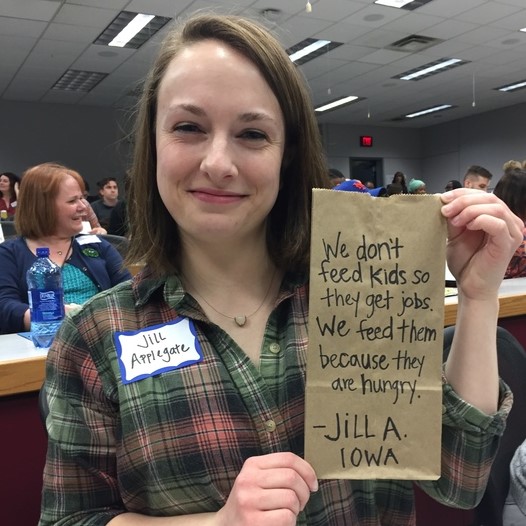 Jill
Applegate
We don't
feed kids so
they get jobs.
We feed them
because they
are hungry.
-Jill A.
IOWA